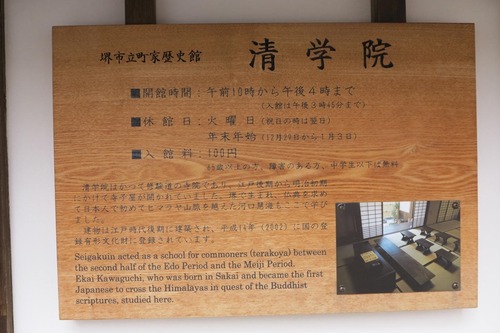 堺市立町家歴史館 清学院
■開館時間：午前10時から午後4時まで
（入館は午後3時45分まで）
■休館日：火曜日（祝日の時は翌日）
年末年始（12月29日から1月3日）
■入館料：100円
65歳以上の方、障害のある方、中学生以下は無料
清学院はかつて修験道の寺院であり、江戸後期から明治初期
にかけて寺子屋が開かれていました。堺で生まれ、仏典を求め
て日本人で初めてヒマラヤ山脈を越えた河口慧海もここで学び
ました。
建物は江戸時代後期に建築され、平成14年（2002）に国の登
録有形文化財に登録されています。
Seigakuin acted as a school for commoners (terakoya) between
the second half of the Edo Period and the Meiji Period.
Ekai Kawaguchi, who was born in Sakai and became the first
Japanese to cross the Himalayas in quest of the Buddhist
scriptures, studied here.